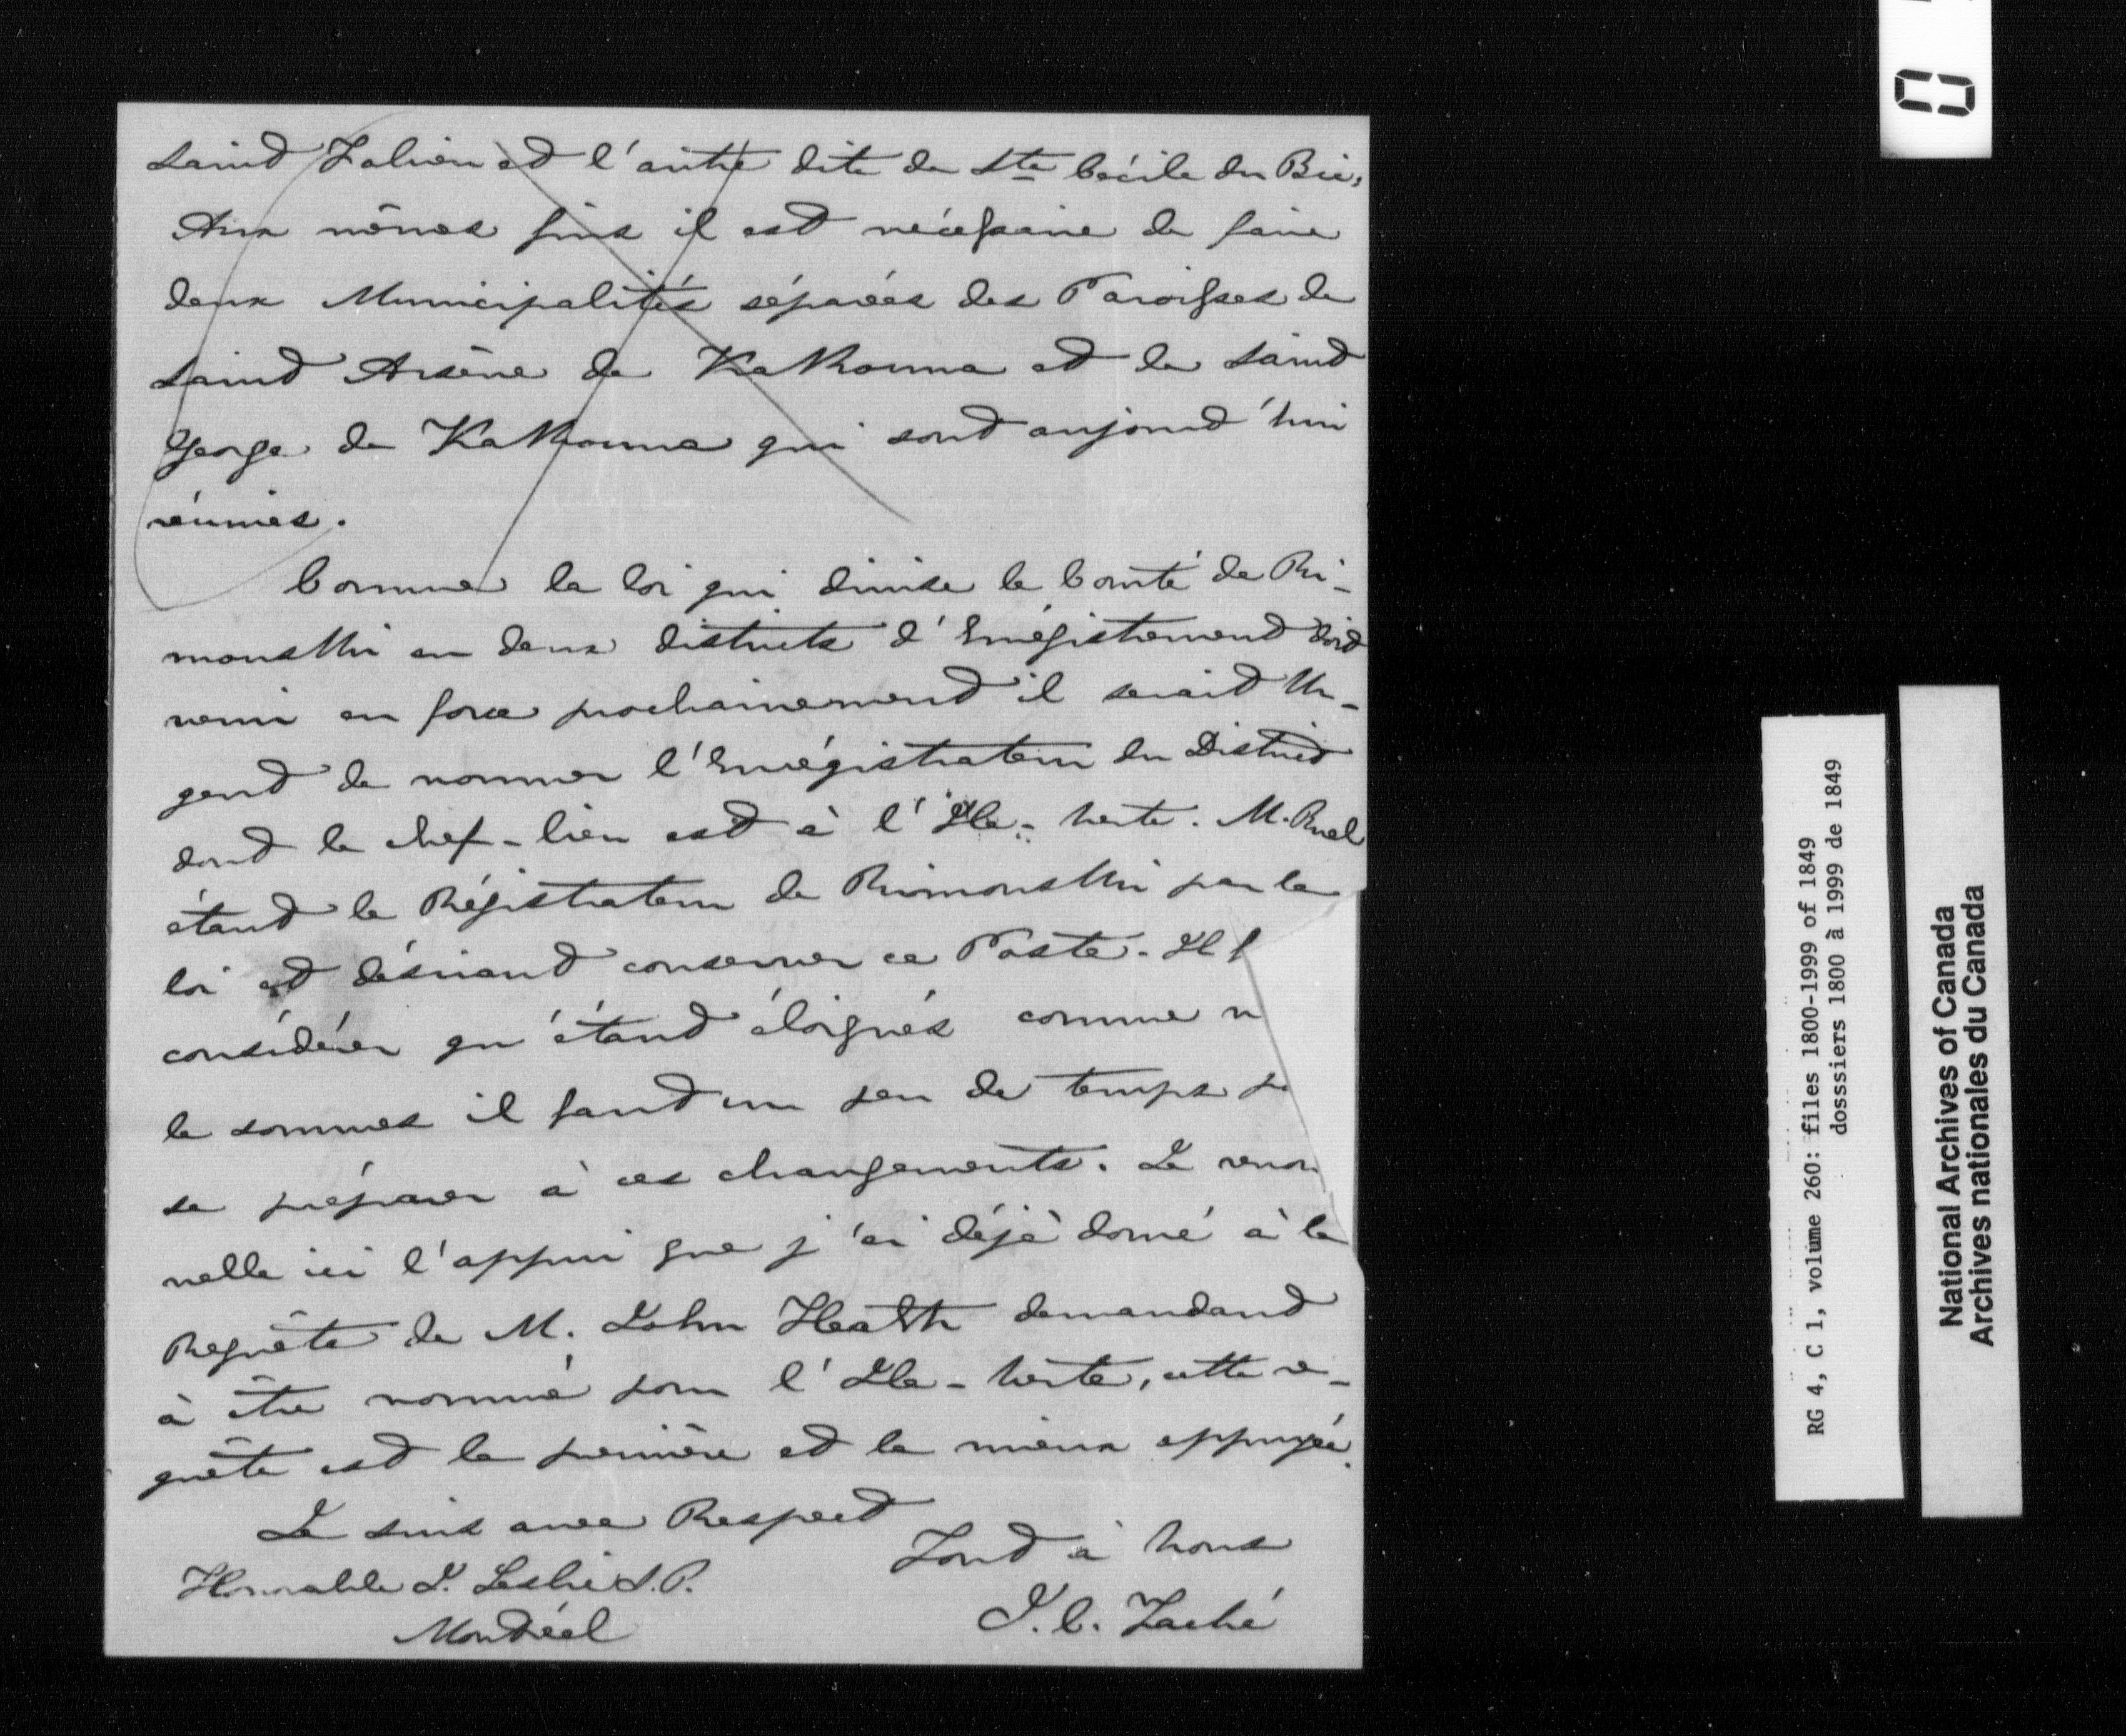 Saint Fabien et l'autre dite de Ste Cécile du Bic,
Aux mêmes fins il est nécessaire de faire
deux Municipalités séparées des Paroisses de
Saint Arsène de KaKouna et de Saint
George de KaKouna qui sont aujourd'hui
réunies.
Comme la loi qui divise le Comté de Ri-
mouski en deux districts d'Enrégistrement doit
venir en force prochainement il serait Ur-
gent de nommer l'Enrégistrateur du District
dont le chef-lieu est à l'Ile-Verte. M. Ruel
étant le Régistrateur de Rimouski par la
loi et désirant conserver ce Poste. Il f
considérer qu'étant éloignés comme n
le sommes il faut un peu de temps p
se préparer à ces changements. Je renou
velle ici l'appui que j'ai déjà donné à la
Requête de M. John Heath demandant
à être nommé pour l'Ile-Verte, cette re-
quête est la première et la mieux appuyée.
Je suis avec Respect
Tout à Vous
Honorable J. Leslie S.P.
J. C. Taché
Montréal
0
RG 4, C 1, volume 260: files 1800-1999 of 1849
dosssiers 1800 à 1999 de 1849
National Archives of Canada
Archives nationales du Canada